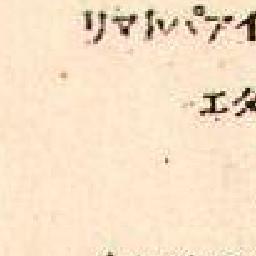 リマトパアイ
エタ